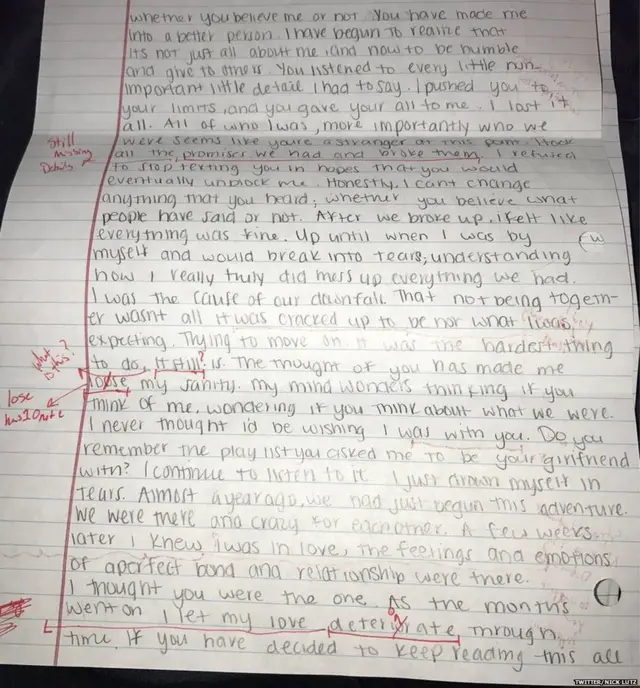 whether you believe me or not. You have made me
into a better person. I have begun to realize that
its not just all about me, and now to be humble
and give to others. You listened to every little
important little detail I had to say. I pushed you to
your limits, and you gave your all to me. I lost it
all. All of who I was, more importantly who we
were seems like youre a stranger at this point.
Still missing Details
all the promises we had and broke them. I refused
to stop texting you in hopes that you would
eventually unblock me. Honestly, I cant change
anything that you heard, whether you believe what
people have said or not. After we broke up, I felt like
everything was fine. Up until when I was by
myself and would break into tears, understanding
how I really truly did mess up everything we had.
I was the cause of our downfall. That not being togeth-
er wasnt all it was cracked up to be nor what I was
expecting. Trying to move on. It was the hardest thing
what is this?
to do. It still? is. The thought of you has made me
loose my sanity. My mind wonders thinking if you
lose has 1 O not 2
think of me, wondering if you think about what we were.
I never thought id be wishing I was with you. Do you
remember the play list you asked me to be your girlfriend
with? I continue to listen to it. I just drown myself in
tears. Almost a year ago, we had just begun this adventure.
We were there and crazy for eachother. A few weeks
later I knew I was in love, the feelings and emotions
of a perfect bond and relationship were there.
I thought you were the one. As the months
went on I let my love through
time. If you have decided to keep reading this all
TWITTER/NICK LUTZ